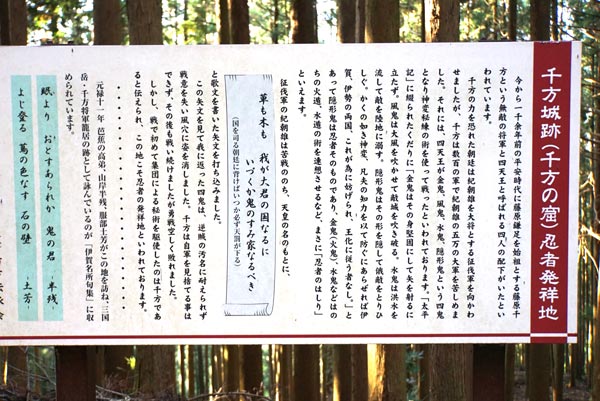 千方城跡(千方の窟)忍者発祥地
今から一千余年前の平安時代に藤原鎌足を始祖とする藤原千
方という無敵の将軍と四天王と呼ばれる四人の配下がいたとい
われています。
千方の力を恐れた朝廷は紀朝雄を大将とする征伐軍を向かわ
せましたが、千方は数百の軍で紀朝雄の五万の大軍を苦しめま
した。それには、四天王が金鬼、風鬼、水鬼、隠形鬼という四鬼
となり神変秘練の術を使って戦ったといわれております。「太平
記」に綴られたくだりに「金鬼はその身堅固にして矢を射るに
立たず。風鬼は大風を吹かせて敵城を吹き破る。水鬼は洪水を
流して敵を陸地に溺す。隠形鬼はその形を隠して俄敵をとりひ
しぐ。かくの如き神変、凡夫の知力を以て防ぐにあらせれば伊
賀、伊勢の両国、これが為に妨げられ、王化に従う者なし。」と
あって隠形鬼は忍者そのものであり、金鬼(火鬼)、水鬼などはの
ちの火遁、水遁の術を連想させるなど、まさに「忍者のはしり」
といえます。
征伐軍の紀朝雄は苦戦ののち、天皇の名のもとに、
草も木も 我が大君の国なるに
いづくか鬼のすみ家なるべき
(国を司る朝廷に背けばいつか必ず天罰が下る)
と歌を書いた矢文を打ち込みました。
この矢文を見て我に返った四鬼は、逆賊の汚名に耐えられず
戦意を失い風穴に姿を消しました。千方は自軍を見捨てる事は
できず、その後も戦い続けましたが勇戦空しく敗れました。
しかし、戦で初めて集団による秘術を駆使したのは千方であ
ると伝えられ、この地こそ忍者の発祥地といわれております。
元禄十一年 芭蕉の高弟、山岸半残、服部土芳がこの地を訪ね、三国
岳・千方将軍籠居の跡として詠んでいるのが「伊賀名所句集」に収
められています。
眠より おとすあられか 鬼の君 -半残-
よじ登る 蔦の色なす 石の壁 -土芳-